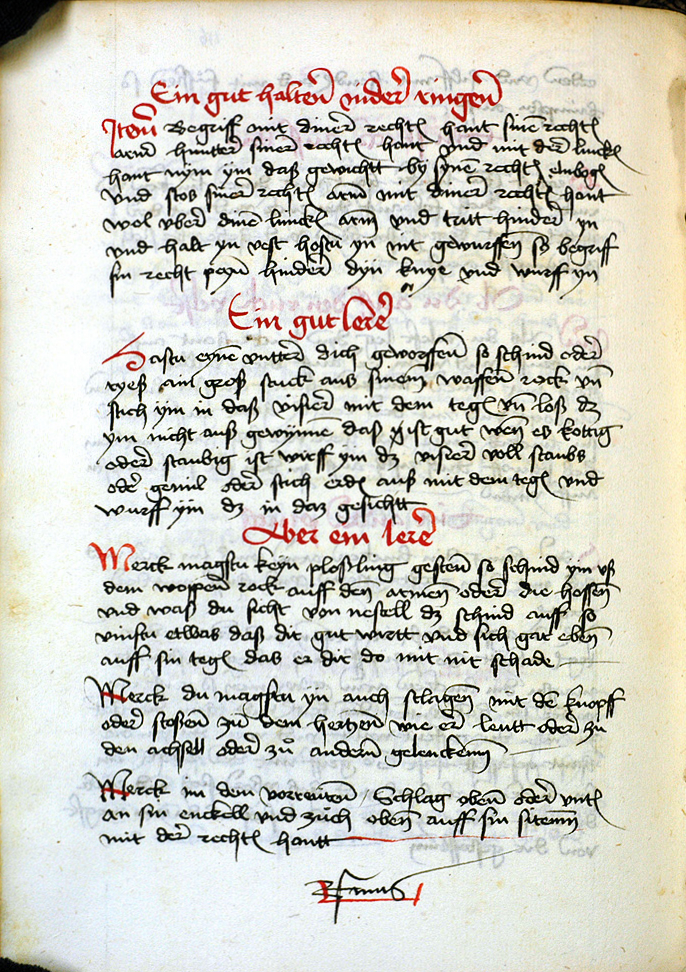 Ein gut halten̄ vnder ringen̄
Item̄ Begriff mit diner rechtē hant sinē rechtē
arm hintter siner rechtē hant vnd mit der linckē
hant nym ym daß gewichtt by synē rechtē elnbogē
vnd stos siner rechtē arm mit diner rechtē hant
wol vber dinē linckē arm vnd tritt hinder yn
vnd halt yn vest hastu yn nit gewurffen̄ so begriff
sin recht peyn hinder dyn knye vnd wurff yn
Ein gut lere
Hastu eyne vntter dich geworffen̄ so schind oder
ryeß ain groß stuck aus sinem waffen rock vn̄
stich ym in daß visier mit dem tegē vn̄ loß dz
ym nicht auß gewynnē daß ist gut wen̄ es kottig
oder staubig ist wirff ym dz visier voll staubs
oder gemil oder stich erdē auß mit dem tegē vnd
wurff ym dz in daz gesichtt
Aber ein lere
Merck magstu keyn ploßling gesten̄ so schind ym vß
dem woppen̄ rock auff den armen̄ oder die hossen̄
vnd waß du sicht von nestell dz schind auff so
vinstu etwas daß dir gut wirtt vnd sich gar eben̄
auff sin tegē das er dir do mit nit schade
Merck du magstu yn auch schlagen̄ mit dē knopff
oder stoßen̄ zu dem hertzen̄ wie er leutt oder zu
den achsell oder zů andern gelenckenn
Merck in dem vorreiten̄ / Schlag oben̄ oder vntē
an sin enckell vnd zuch oben̄ auff sin sitenn
mit der rechtē hantt